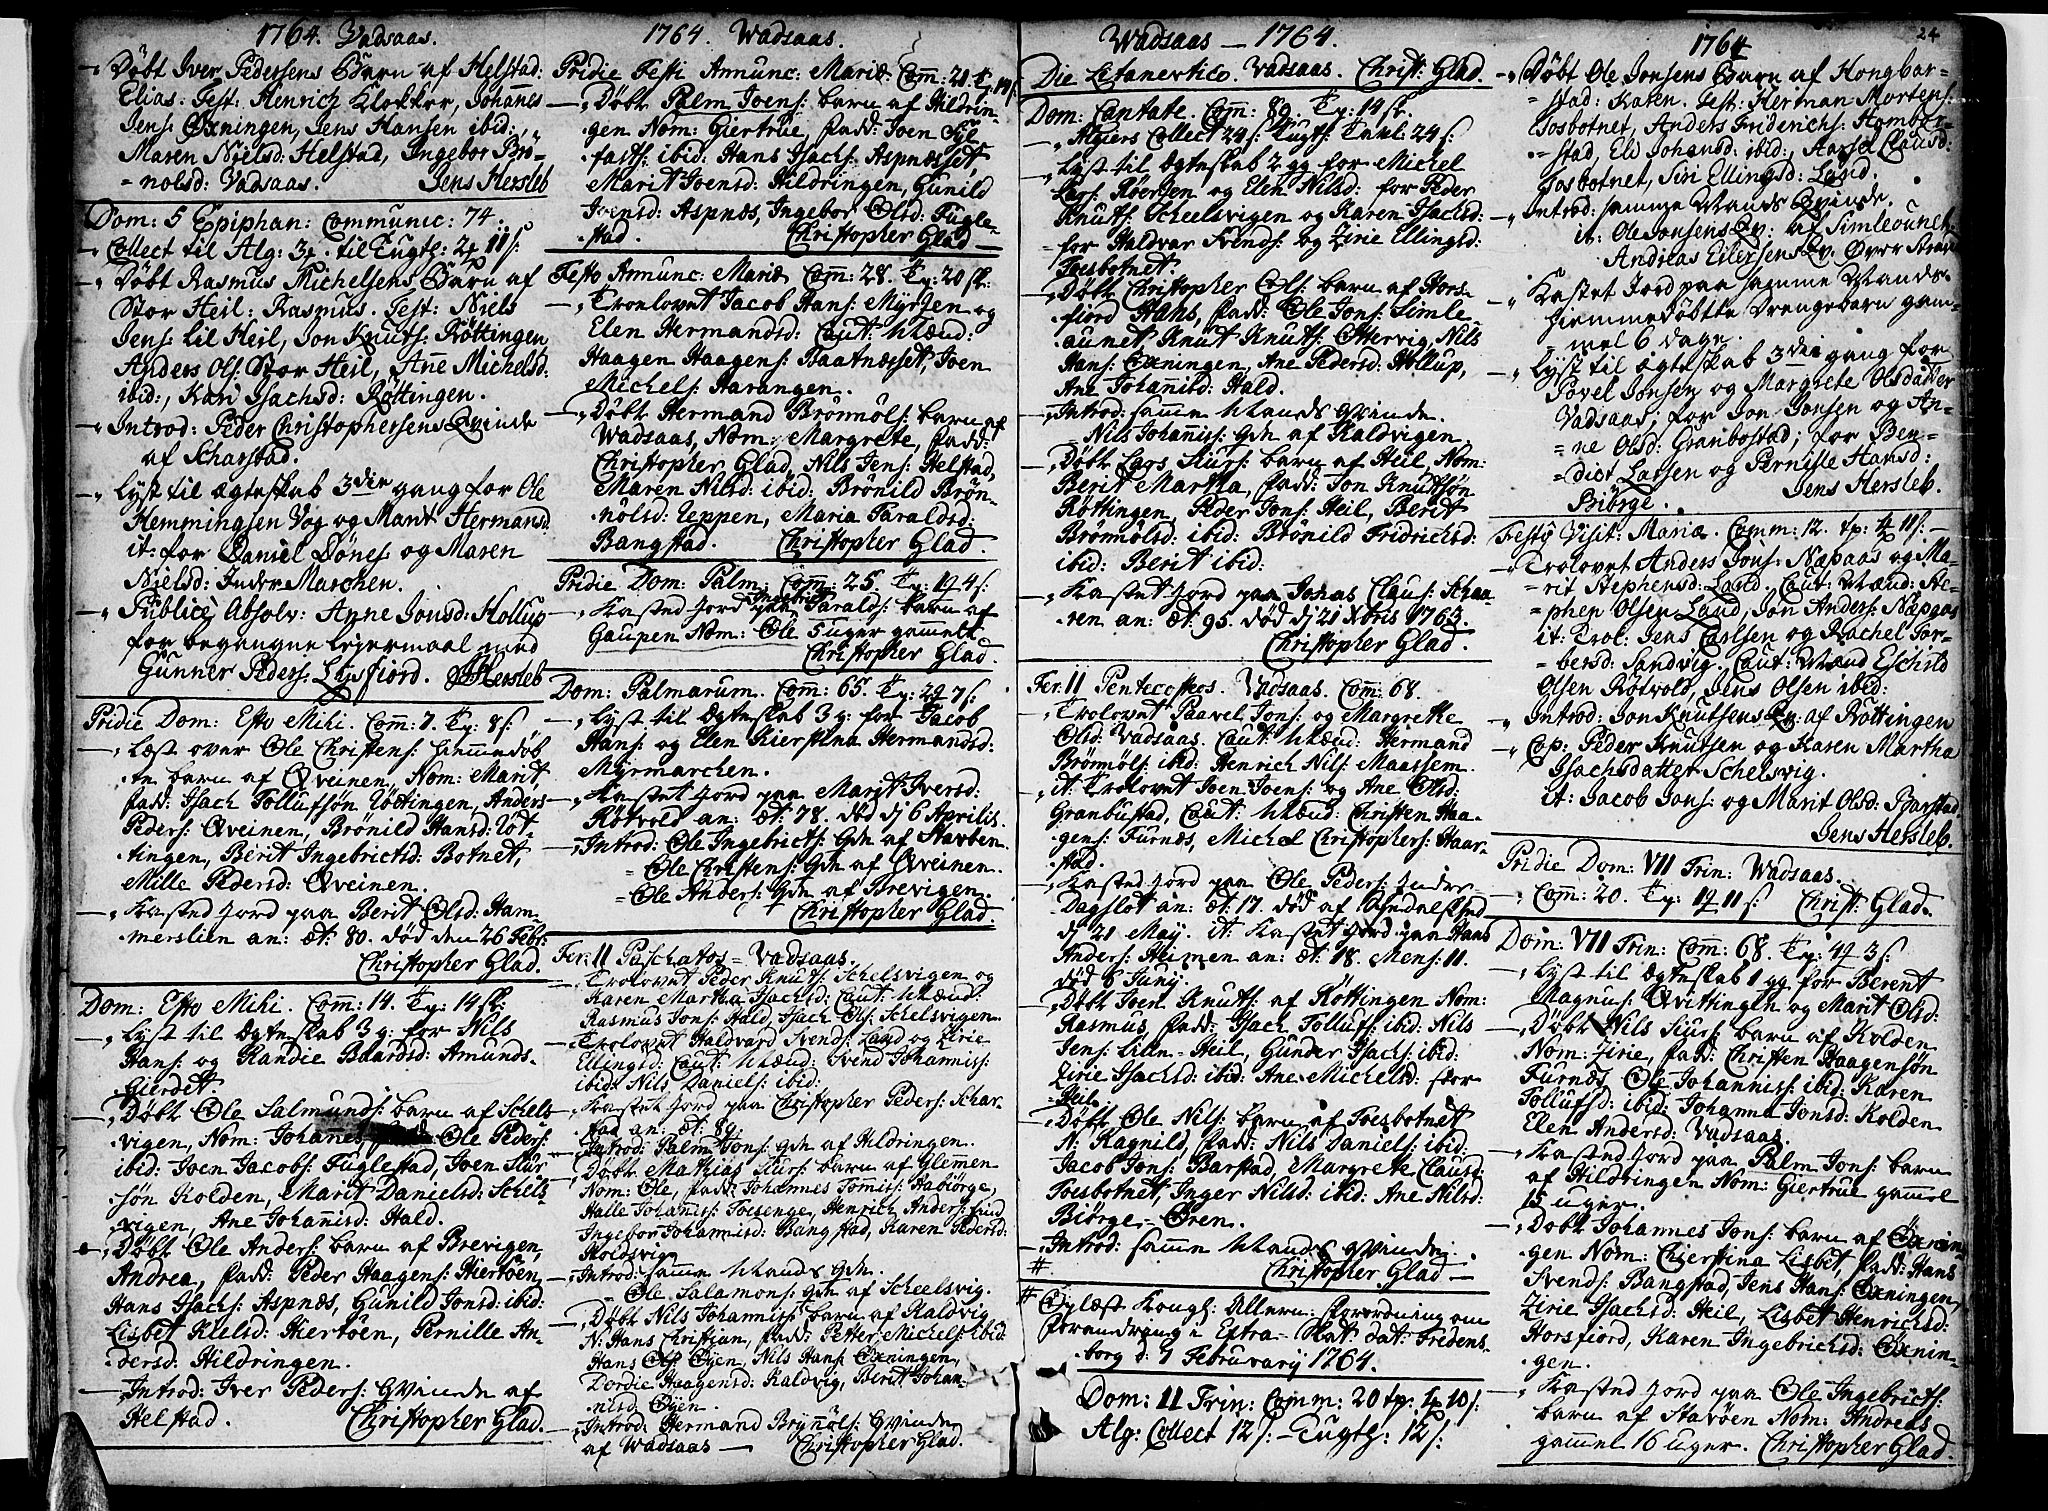 1764. Vadsaas.
Døbt Iver Pedersens Barn af Helstad:
Elias: Test: Henrich Klokker, Johannes
Jens: Øxningen, Jens Hansen ibid:,
Maren Nielsd: Helstad, Ingebor Brø-
nolsd: Vadsaas. Jens Hersleb
Dom: 5 Epiphan: Communic: 74.
Collect til Alg: 3 . til Tugth: 11 s:
Døbt Rasmus Michelsens Barn af
Stor Heil: Rasmus. Test: Niels
Jens: Lil Heil, Jon Knuts: Røttingen,
Anders Ols: Stor Heil, Anne Michelsd:
ibid:, Kari Isachsd: Røttingen.
Introd: Peder Christophersens Qvinde
af Scharstad.
Lyst til ægteskab 3die gang for Ole
Hemmingsen Vog og Marit Hermansd
it: for Daniel Dønes: og Maren
Nielsd: Inder Marchen.
Publicè Absolv: Anne Jonsd: Hollup
for begangne Leiermaal med
Gunner Peders: Lysfiord. JHersleb
Pridie Dom: Esto Mihi. Com: 7. Tp: 8 s:
Læst over Ole Christens: hiemmedøb
te barn af Qveinen, Nom: Marit,
fadd: Isach Tollufsøn Røttingen, Anders
Peders: Qveinen, Brønild Hansd: Røt-
tingen, Berit Ingebrictsd: Botnet,
Mille Pedersd: Qveinen.
Kasted Jord paa Berit Olsd: Ham
merslien an: æt: 80. død den 26 Febr:
Christopher Glad.
Dom: Esto Mihi. Com: 14. Tp: 14 sk:
Lyst til Ægteskab 3 g: for Nils
Hans: og Randie Baardsd: Amunds-
Gierdet
Døbt Ole Salmunds: barn af Schels
vigen, Nom: Johanes, Ole Peders:
ibid: Joen Jacobs: Fuglestad, Joen Siur
søn Kolden, Marit Danielsd: Schels
vigen, Ane Johanisd: Hald.
Døbt Ole Anders: barn af Brevigen,
Andrea, fadd: Peder Haagens: Hiertøen,
Hans Isachs: Aspnæs, Gunild Jonsd: ibid:
Lisbet Nielsd: Hiertøen, Pernille An-
dersd: Hildringen.
Introd: Iver Peders: Qvinde af
Helstad. Christopher Glad.
1764. Wadsaas.
Pridie Festi Annunc: Mariæ Com: 21
Døbt Palm Joens: barn af Hildrin-
gen Nom: Giertrue, fadd: Joen Sil
fasts: ibid: Hans Isachs: Aspnæsset,
Marit Joensd: Hildringen, Gunild
Joensd: Aspnæs, Ingebor Olsd: Fugle-
stad. Christopher Glad
Festo Annunc: Mariæ Com: 28. Tp: 20 sk:
Trolovet Jacob Hans: Myrsen og
Elen Hermandsd: Caut: Mænd:
Haagen Haagens: Baatnæsset, Joen
Michels: Harangen.
Døbt Hermand Brønnols: barn af
Wadsaas, Nom: Margrete, fadd:
Christopher Glad, Nils Jens: Helstad,
Maren Nilsd: ibid: Brønild Brøn-
nolsd: Teppen, Maria Taraldsd:
Bangstad. Christopher Glad.
Pridie Dom: Palm: Com: 25. Tp: 4 s:
Kasted Jord paa Ingebrict Taralds: barn af
Gaupen Nom: Ole 5 uger gammelt.
Christopher Glad.
Dom: Palmarum. Com: 65. Tp: 7 s:
Lyst til Ægteskab 3 g: for Jacob
Hans: og Elen Kierstina Hermandsd:
Myrmarchen.
Kastet Jord paa Marit Iversd:
Røtvold an: æt: 78. død dj 6 Aprilis.
Introd: Ole Ingebricts: Qdn af Stavøen.
Ole Christens: Qdn af Qveinen.
Ole Anders: Qdn af Brevigen.
Christopher Glad.
Fer: 11 Paschatos = Vadsaas.
Trolovet Peder Knuts: Schelsvigen og
Karen Martha Isachsd: Caut: Mænd:
Rasmus Jons: Hald, Isach Ols: Schelsvigen
Trolovet Haldvard Svends: Land og Zirie
Ellingsd: Caut: Mænd: Svend Johanniss:
ibid: Nils Daniels: ibid:
Kastet Jord paa Christopher Peders: Schar-
stad an: æt: 89.
Introd: Palm Jons: Qdn af Hildringen.
Døbt Mathias Siurs: barn af Glemmen
Nom: Ole, fadd: Johannes Tomiss: Habiørge,
Halle Johaniss: Tosenge, Henrich Anders:
Ingebor Johannisd: Bangstad, Karen Pedersd:
Holdsvig
Introd: samme Mands Qdn.
Ole Salamons: Qdn af Scheelsvig.
Døbt Nils Johanniss: barn af Kaldvig
N: Hans Christian, fadd: Petter Michels: ibid:
Hans Ols: Øyen, Nils Hans: Øxningen,
Dordie Haagensd: Kaldvig, Berit Johan-
nisd: Øyen.
Introd: Hermand Brynnols: Qvinde
af Wadsaas — Christopher Glad.
Wadsaas — 1764.
Die Letanevtico. Vadsaas. Christ: Glad.
Dom: Cantate. Com: 80. Tp: 14 sk.
Algiers Collect 24 s: Tugth: Tavl: 24 s:
Lyst til Ægteskab 2 gg for Michel
Lars: Røersen og Elen Nilsd: for Peder
Knuts: Scheelsvigen og Karen Isachsd:
for Haldvar Svends: og Zirie Ellingsd:
Toesbotnet.
Døbt Christopher Ols: barn af Hors-
fiord Hans, fadd: Ole Jons: Simle-
aunet, Knut Knuts: Ottervig, Nils
Hans: Øxningen, Ane Pedersd: Hollup,
Ane Johanisd: Hald.
Introd: samme Mands Qvinde.
Nils Johaniss: Qdn af Kaldvigen.
Døbt Lars Siurs: barn af Heil, Nom:
Berit Martha, fadd: Jon Knudsøn
Røttingen, Peder Jons: Heil, Berit
Brønnolsd: ibid: Brønild Fridrichsd:
ibid: Berit ibid:
Kastet Jord paa Johas Claus: Schaa-
ren an: æt: 95. død dj 21 Xbris 1763.
Christopher Glad.
Fer: 11 Pentecostes. Vadsaas. Com: 68.
Trolovet Paavel Jons: og Margrette
Olsd: Vadsaas. Caut: Mænd: Hermand
Brønnols: ibid: Henrich Nils: Maassem.
it: Trolovet Joen Joens: og Ane Olsd:
Granbustad, Caut: Mænd: Christen Haa-
gens: Furnæs, Michel Christophers: Haar-
stad.
Kasted Jord paa Ole Peders: Inder-
Dagslot an: æt: 17. død af
dj 21 May. it: Kastet Jord paa Hans
Anders: Heimen an: æt: 18. Mens: 11.
død 6 Juny.
Døbt Joen Knuts: af Røttingen Nom:
Rasmus, fadd: Isach Tollufs: ibid: Nils
Jens: Lille-Heil, Gunder Isachs: ibid:
Zirie Isachsd: ibid: Ane Michelsd: stor
Heil.
Døbt Ole Nils: barn af Toesbotnet
N. Ragnild, fadd: Nils Daniels: ibid:
Jacob Jons: Barstad, Margrete Clausd:
Toesbotnet, Inger Nilsd: ibid: Ane Nilsd:
Biørge-Øren.
Introd: samme Mands Qvinde.
# Christopher Glad —
# Oplæst Kongl: Allern: forordning om
forandring i Extra-Skat dat: Fredens-
borg d: 7 Februarij 1764.
Dom: 11 Trin: Comm: 20 tp: 10 s:
Alg: Collect 12 s: — Tugth: 12 s:
1764
24
Døbt Ole Jonsens Barn af Hongbar-
stad: Karen. Test: Herman Mortens:
Tosbotnet, Anders Friderichs: Hombor-
stad, Eli Johansd: ibid:, Aasel Clausd:
Tosbotnet, Siri Ellingsd: Land.
Introd: samme Mands Qvinde.
it: Ole Jonsens Qv: af Simleounet.
Andreas Eilersens Qv. Øver
Kastet Jord paa samme Mands
hiemmedøbtte Drengebarn gam-
mel 6 dage.
Lyst til ægteskab 3die gang for
Povel Jonsen og Margrete Olsdatter
Vadsaas; for Jon Jonsen og An-
ne Olsd: Granbostad; for Ben-
dict Larsen og Pernille Hansd:
Biørge. Jens Hersleb.
Festo Visit: Mariæ. Comm: 12. tp: 11 s: —
Trolovet Anders Jons: Næpaas og Ma-
rit Stephensd: Land. Caut: Mænd: Ste-
phen Olsen Land, Jon Anders: Næpaas
it: Trol: Jens Carlsen og Rachel Tor-
bersd: Sandvig. Caut: Mænd Eschild
Olsen Røtvold, Jens Olsen ibid:
Introd: Jon Knutsens Qv: af Røttingen
Cop: Peder Knutsen og Karen Martha
Isachsdatter Schelsvig.
it: Jacob Jons: og Marit Olsd: Barstad
Jens Hersleb.
Pridie Dom: VII Trin: Wadsaas.
Com: 20. Tp: 11 s: Christ: Glad.
Dom: VII Trin: Com: 68. Tp: 3 s:
Lyst til Ægteskab 1 gg for Berent
Magnus: Qvittingen og Marit Olsd:
Døbt Nils Siurs: barn af Kolden
Nom: Zirie, fadd: Christen Haagensøn
Furnæs, Ole Johanniss: ibid: Karen
Tollufsd: ibid: Johanna Jonsd: Kolden
Elen Andersd: Vadsaas.
Kasted Jord paa Palm Jons: barn
af Hildringen Nom: Giertrue gammel
15 uger.
Døbt Johannes Jons: barn af Øxnin-
gen Nom: Chierstina Lisbet, fadd: Hans
Svends: Bangstad, Jens Hans: Øxningen,
Zirie Isachsd: Heil, Lisbet Henrichsd:
Horsfiord, Karen Ingebrichsd: Øxnin-
gen.
Kasted Jord paa Ole Ingebricts:
barn af Stavøen Nom: Andreas
gammel 16 uger. Christopher Glad.